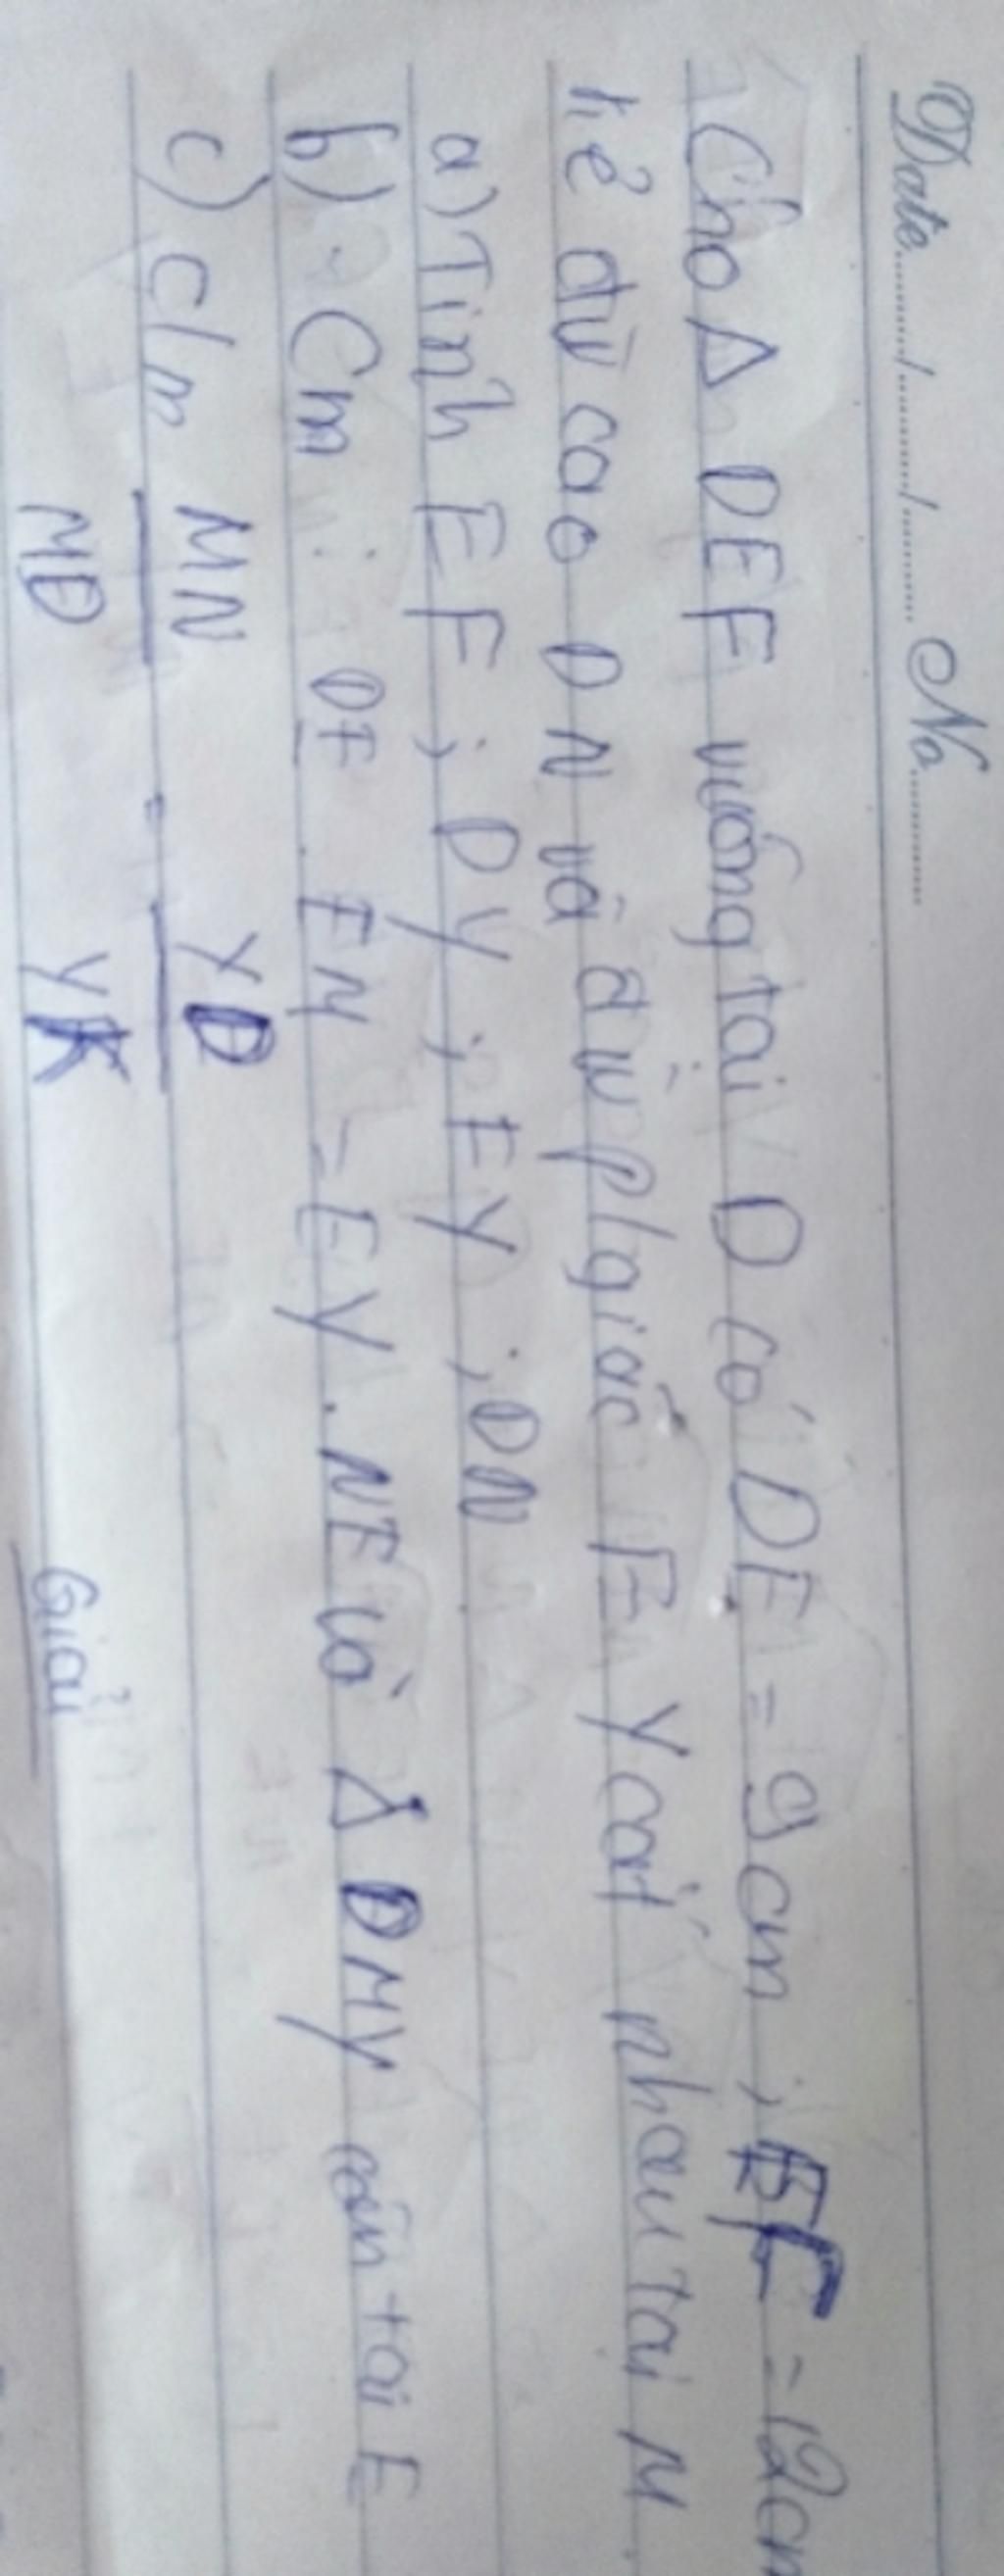 Date......./......./....... No..........
Cho Δ DEF vuông tại D có DE = 9 cm ; = 12cm
kẻ đừ cao DN và đừ p/giác EY cắt nhau tại M
a) Tính EF ; DY ; EY ; DN
b) Cm : DE . EM = EY . NE và Δ DMY cân tại E
c) c/m MN/MD = YD/YK
Giải